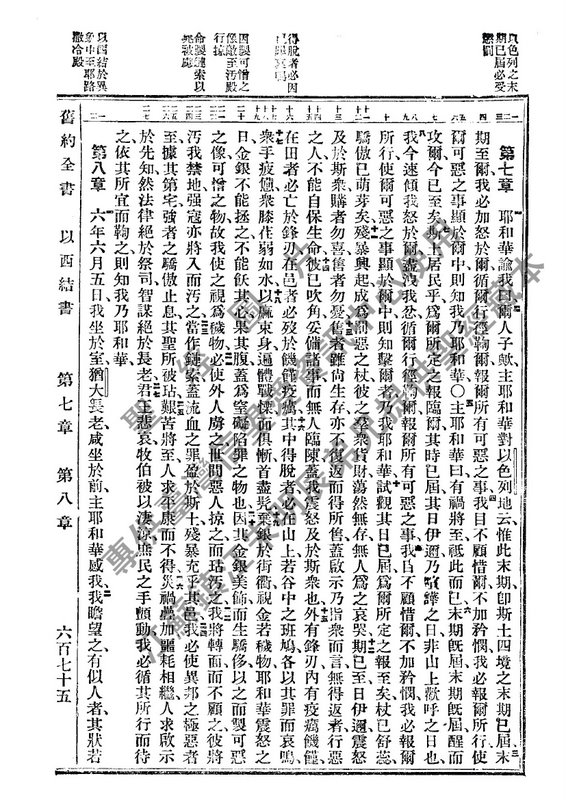 以色列之末期已屆必受懲罰
得脫者必因己罪哀鳴
因製可憎之像敵至污殿行掠
命製鏈索以示被虜
以西結於異象中至耶路撒冷殿
第七章 耶和華諭我曰爾人子歟主耶和華對以色列地云惟此末期卽斯土四境之末期已屆末
期至爾我必加怒於爾循爾行徑鞫爾報爾所有可惡之事我目不顧惜爾不加矜憫我必報爾所行使
爾可惡之事顯於爾中則知我乃耶和華○主耶和華曰有禍將至祗此而已末期旣屆末期旣屆醒而
攻爾今已至矣斯土居民乎爲爾所定之報臨爾其時已屆其日伊邇乃喧譁之日非山上歡呼之日也
我今速傾我怒於爾盡洩我忿循爾行徑鞫爾報爾所有可惡之事我目不顧惜爾不加矜憫我必報爾
所行使爾可惡之事顯於爾中則知擊爾者乃我耶和華試觀其日已屆爲爾所定之報至矣杖已舒蕊
驕傲已萌芽矣殘暴興起成爲懲惡之杖彼之羣衆貨財蕩然無存無人爲之哀哭期已至日伊邇震怒
及於斯衆購者勿喜售者勿憂售者雖尙生存亦不得返而得所售蓋啟示乃指衆而言無得返者行惡
之人不能自保生命彼已吹角妥備諸事而無人臨陳蓋我震怒及於斯衆也外有鋒刃內有疫癘饑饉
在田者必亡於鋒刃在邑者必歿於饑饉疫癘其中得脫者必在山上若谷中之班鳩各以其罪而哀鳴
衆手疲憊衆膝荏弱如水以麻束身遍體戰慄面俱慚首盡髡棄銀於街衢視金若穢物耶和華震怒之
日金銀不能拯之不能飫其心果其腹蓋爲窒礙陷罪之物也因其金銀美飾而生驕侈以之而製可惡
之像可憎之物故我使之爲穢物必使外人虜之世間惡人掠之而玷污之我將轉面而不顧彼將
污我禁地强寇亦將入而污之當作鏈索蓋流血之罪盈於斯土殘暴充乎其邑我必使異邦之極惡者
至據其第宅强者之驕傲止息其聖所被玷艱苦將至人求平康而不得災禍疊加噩耗相繼人求啟示
於先知然法律絕於祭司智謀絕於長老君王悲哀牧伯被以淒涼庶民之手顫動我必循其所行而待
之依其所宜而鞫之則知我乃耶和華
第八章 六年六月五日我坐於室猶大長老咸坐於前主耶和華感我我瞻望之有似人者其狀若
舊約全書 以西結書 第七章 第八章 六百七十五